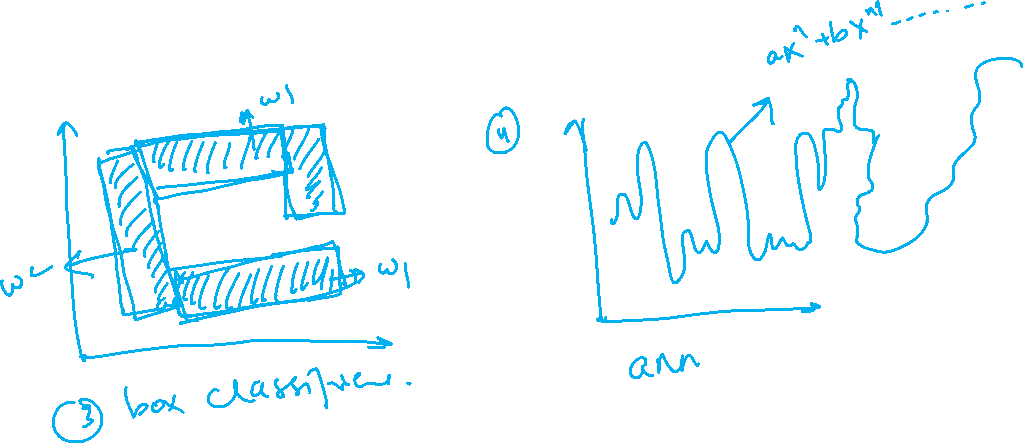 w1
w2
w1
③ box classifier.
④
ax^n+bx^n-1 --------
ann